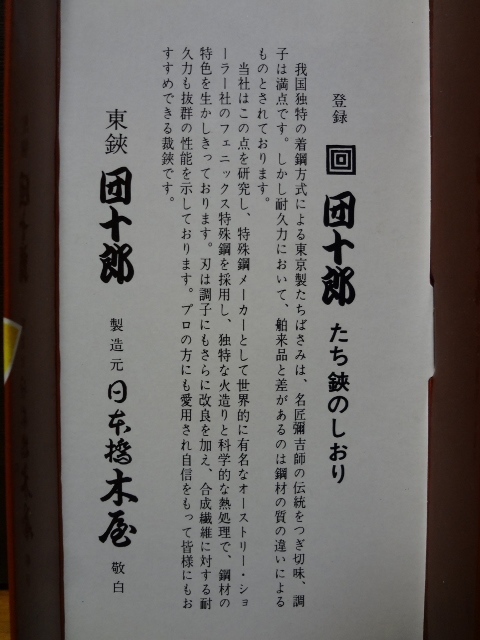 登録 回 団十郎 たち鋏のしおり
我国独特の着鋼方式による東京製たちばさみは、名匠彌吉師の伝統をつぎ切味、調
子は満点です。しかし耐久力において、舶来品と差があるのは鋼材の質の違いによる
ものとされております。
当社はこの点を研究し、特殊鋼メーカーとして世界的に有名なオーストリー・ショ
ーラー社のフェニックス特殊鋼を採用し、独特な火造りと科学的な熱処理で、鋼材の
特色を生かしきっております。刃は調子にもさらに改良を加え、合成繊維に対する耐
久力も抜群の性能を示しております。プロの方にも愛用され自信をもって皆様にもお
すすめできる裁鋏です。
東鋏 団十郎 製造元 日本橋木屋 敬白